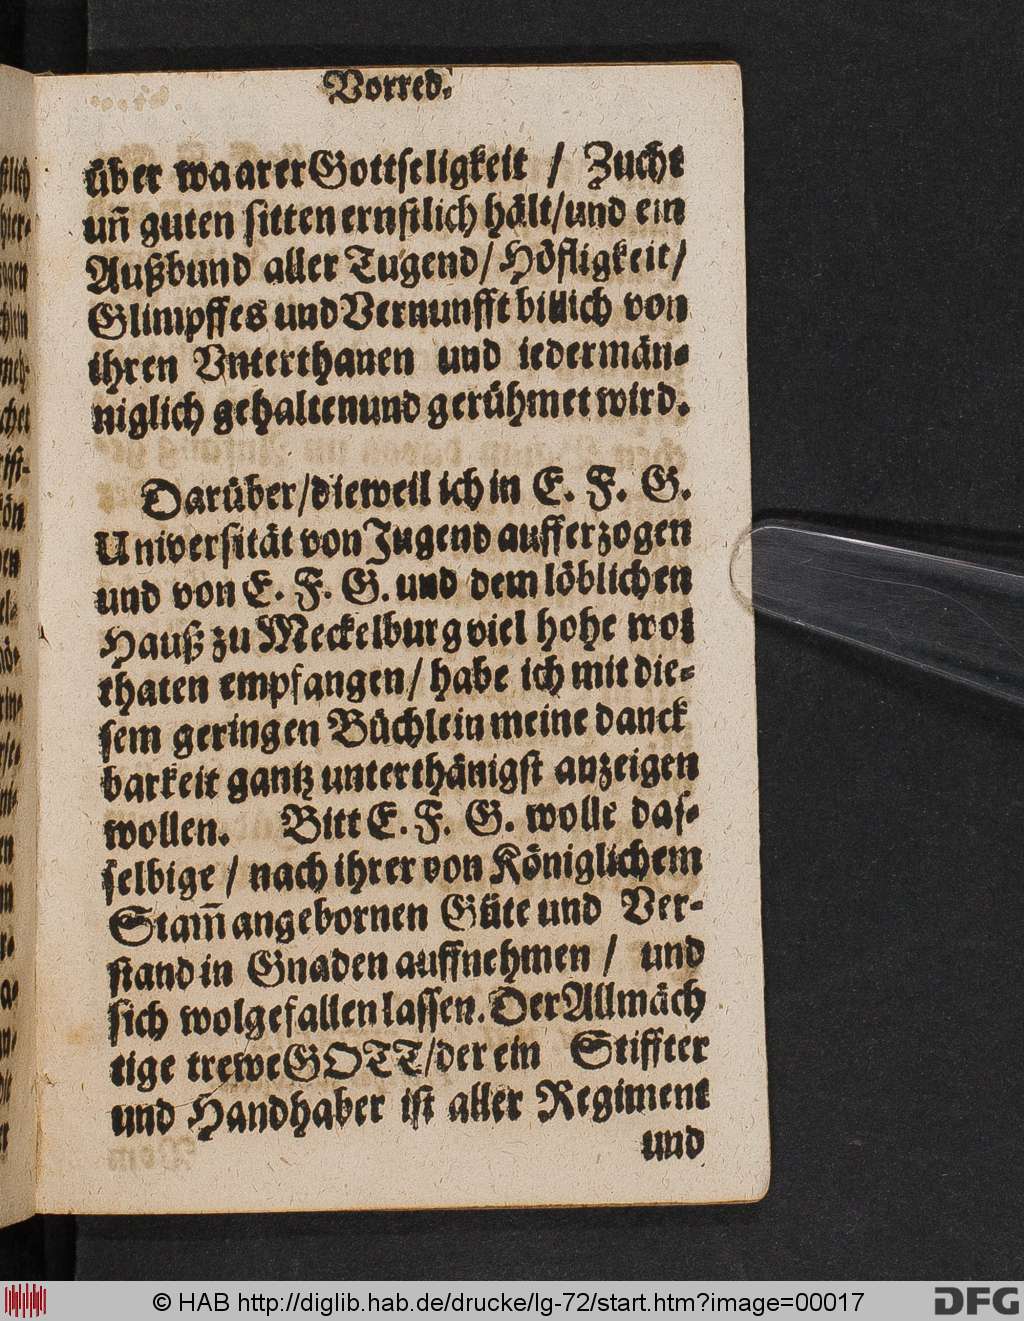 Vorred.
über waarer Gottseligkeit / Zucht
uñ guten sitten ernstlich hält/und ein
Außbund aller Tugend/Höfligkeit/
Glimpffes und Vernunfft billich von
ihren Vnterthanen und iedermän-
niglich gehalten und gerühmet wird.
Darüber/dieweil ich in E. F. G.
Universität von Jugend aufferzogen
und von E. F. G. und dem löblichen
Hauß zu Meckelburg viel hohe wol
thaten empfangen/habe ich mit die-
sem geringen Büchlein meine danck
barkeit gantz unterthänigst anzeigen
wollen. Bitt E. F. G. wolle das-
selbige / nach ihrer von Königlichem
Stam̃ angebornen Güte und Ver-
stand in Gnaden auffnehmen / und
sich wolgefallen lassen. Der Allmäch
tige trewe GOTT/der ein Stiffter
und Handhaber ist aller Regiment
und
© HAB http://diglib.hab.de/drucke/lg-72/start.htm?image=00017
DFG